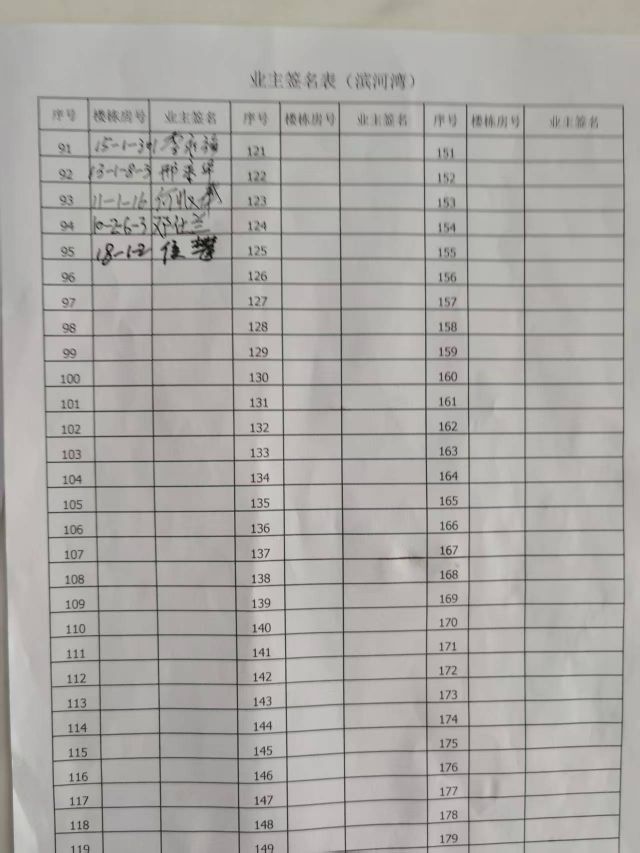 业主签名表（滨河湾）
序号 楼栋房号 业主签名 序号 楼栋房号 业主签名 序号 楼栋房号 业主签名
91 15-1-3 李永福 121 151
92 13-1-8-3 邢 122 152
93 11-1-16 123 153
94 10-2-6-3 邓仕兰 124 154
95 18-1-2 任 125 155
96 126 156
97 127 157
98 128 158
99 129 159
100 130 160
101 131 161
102 132 162
103 133 163
104 134 164
105 135 165
106 136 166
107 137 167
108 138 168
109 139 169
110 140 170
111 141 171
112 142 172
113 143 173
114 144 174
115 145 175
116 146 176
117 147 177
118 148 178
119 149 179